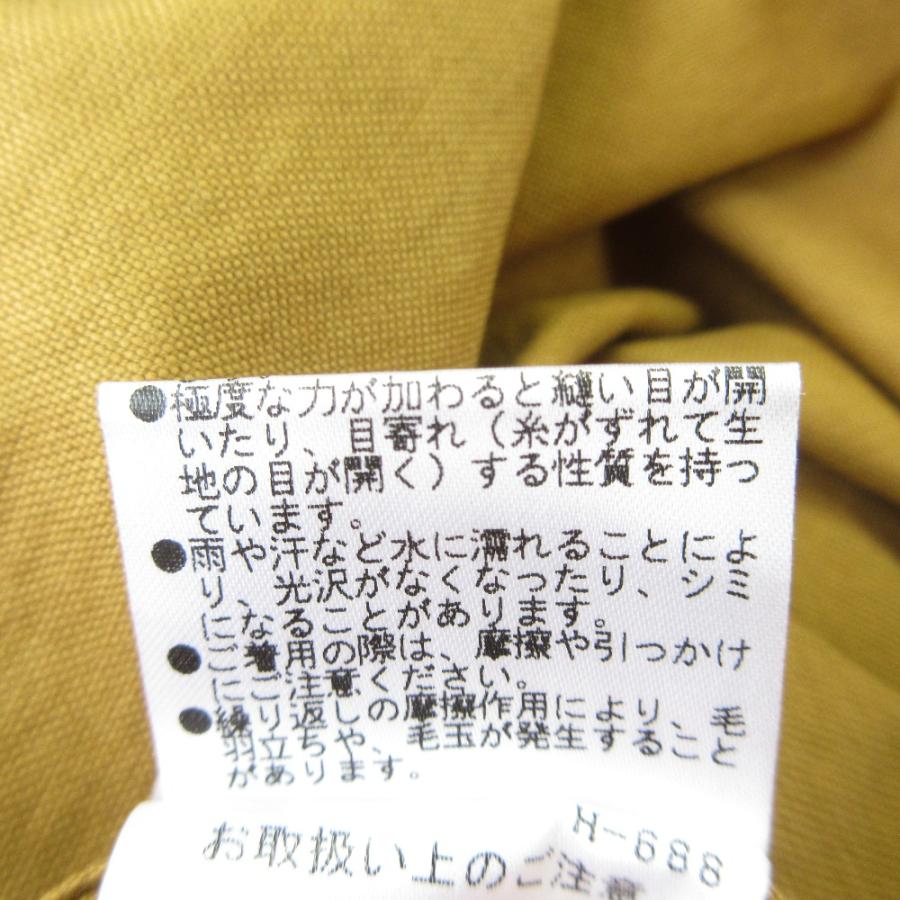 ●極度な力が加わると縫い目が開
いたり、目寄れ（糸がずれて生
地の目が開く）する性質を持っ
ています。
●雨や汗など水に濡れることによ
り、光沢がなくなったり、シミ
になることがあります。
●ご着用の際は、摩擦や引っかけ
にご注意ください。
●繰り返しの摩擦作用により、毛
羽立ちや、毛玉が発生すること
があります。
H-688
お取扱い上のご注意